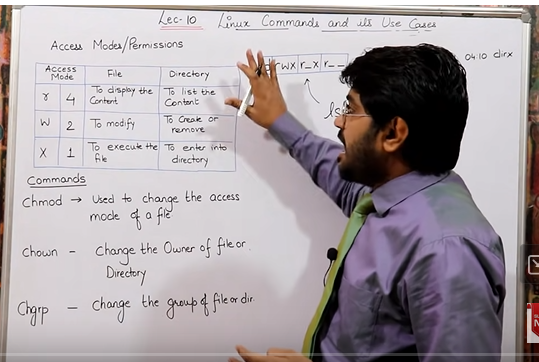 Lec-10 Linux Commands and its Use Cases
Access Modes/Permissions
rwx r_x r__
04:10 dirx
Access Mode File Directory
r 4 To display the Content To list the Content
W 2 To modify To Create or remove
X 1 To execute the file To enter into directory
Commands
Chmod → Used to change the access
mode of a file
Chown - Change the Owner of file or
Directory
Chgrp - Change the group of file or dir